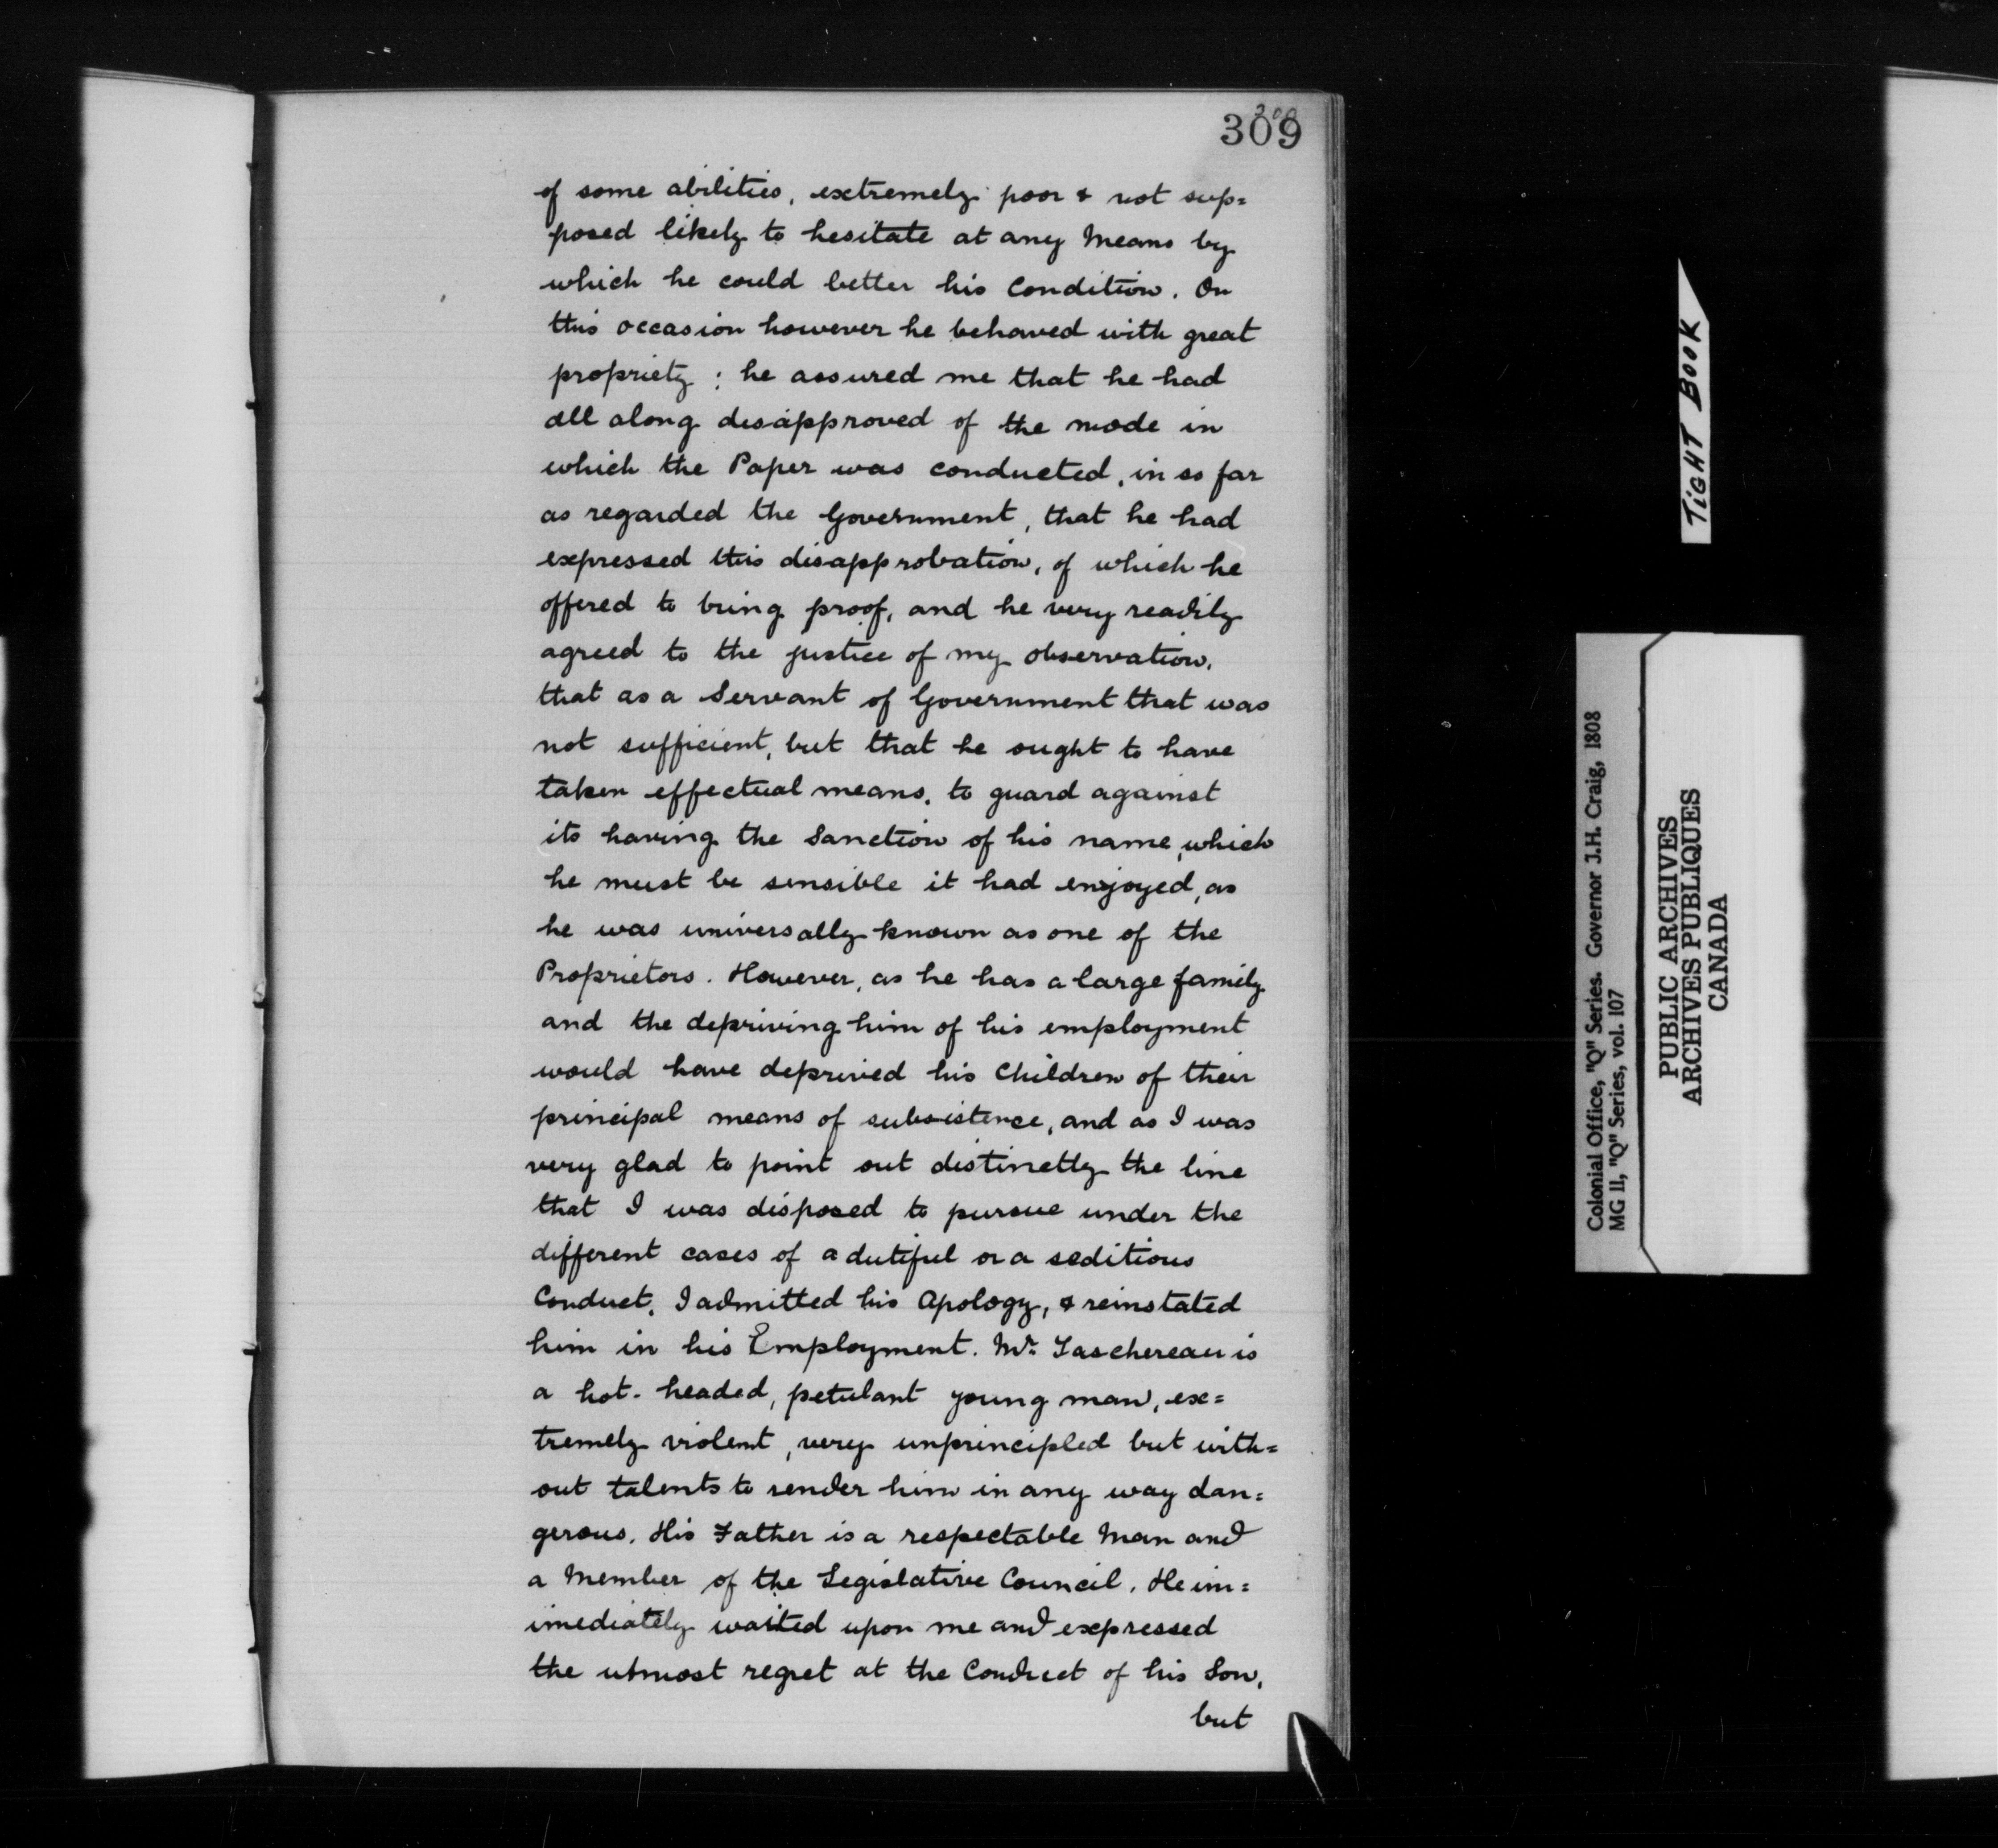 309
of some abilities, extremely poor & not sup=
posed likely to hesitate at any Means by
which he could better his Condition. On
this occasion however he behaved with great
propriety; he assured me that he had
all along disapproved of the mode in
which the Paper was conducted, in so far
as regarded the Government, that he had
expressed this disapprobation, of which he
offered to bring proof, and he very readily
agreed to the justice of my observation,
that as a Servant of Government that was
not sufficient, but that he ought to have
taken effectual means, to guard against
its having the Sanction of his name, which
he must be sensible it had enjoyed, as
he was universally known as one of the
Proprietors. However, as he has a large family
and the depriving him of his employment
would have deprived his Children of their
principal means of subsistence, and as I was
very glad to point out distinctly the line
that I was disposed to pursue under the
different cases of a dutiful or a seditious
Conduct, I admitted his Apology, & reinstated
him in his Employment. Mr. Taschereau is
a hot-headed, petulant young man, ex=
tremely violent, very unprincipled but with=
out talents to render him in any way dan=
gerous. His Father is a respectable Man and
a Member of the Legislative Council. He im=
imediately waited upon me and expressed
the utmost regret at the Conduct of his Son,
but
TiGHT BOOK
Colonial Office, "Q" Series. Governor J.H. Craig, 1808
MG 11, "Q" Series, vol. 107
PUBLIC ARCHIVES
ARCHIVES PUBLIQUES
CANADA